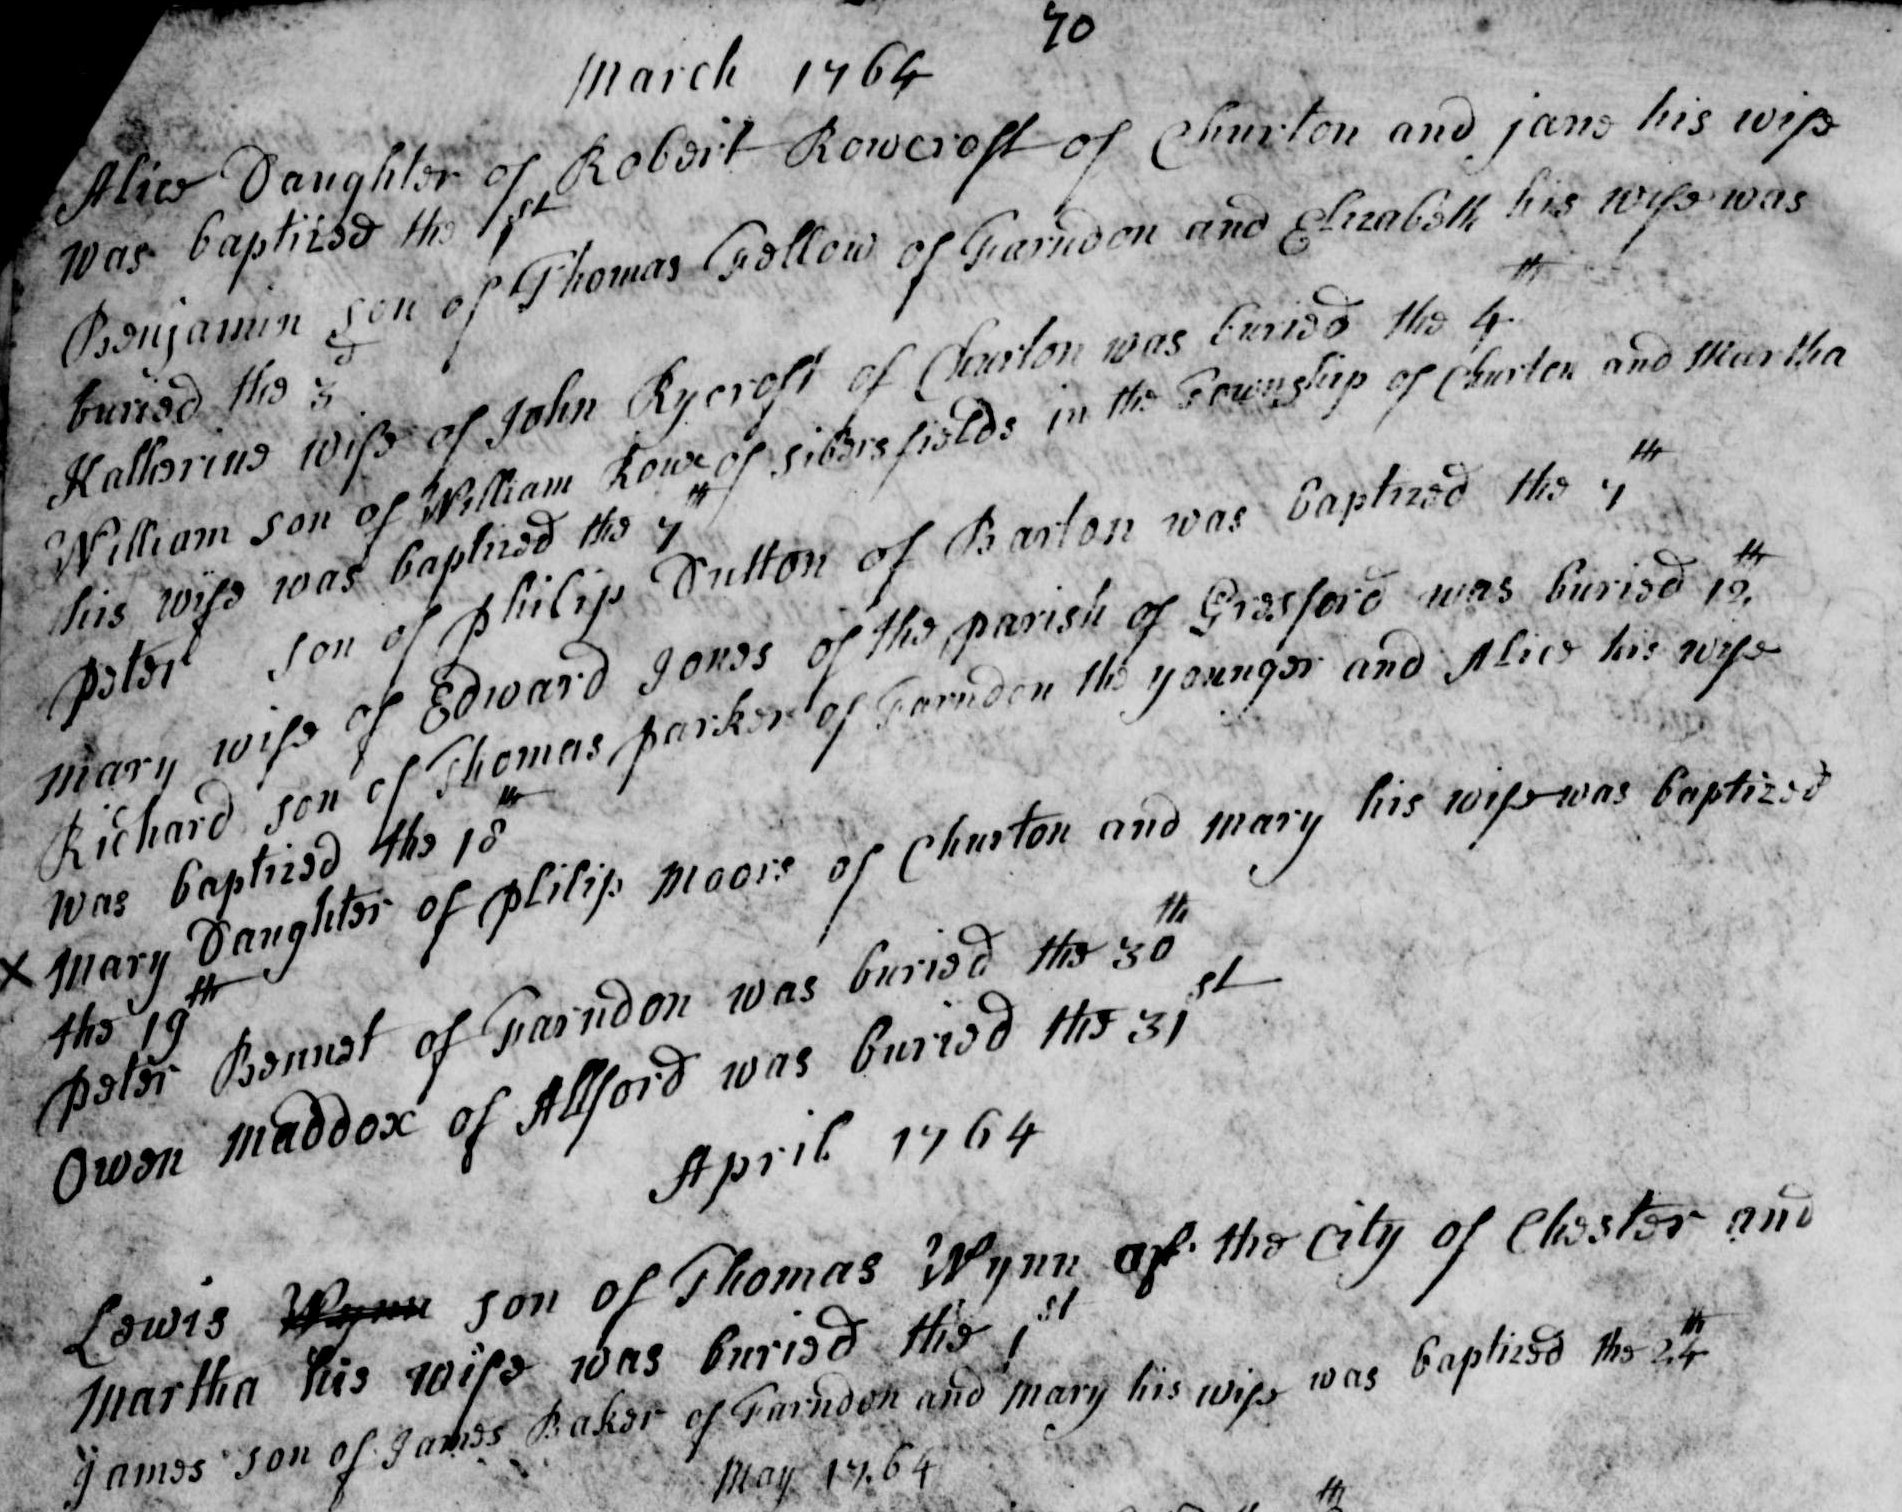 70
March 1764
Alice Daughter of Robert Rowcroft of Churton and jane his wife
was baptized the 1st
Benjamin son of Thomas Fellow of Farndon and Elizabeth his wife was
buried the 3d
Katherine wife of John Rycroft of Churton was buried the 4th
William son of William Rowe of sibersfields in the Township of Churton and Martha
his wife was baptized the 7th
peter son of philip Dutton of Barton was baptized the 7th
mary wife of Edward Jones of the parish of Gresford was buried 12th
Richard son of Thomas parker of Farndon the younger and Alice his wife
was baptized the 18th
x mary Daughter of philip moore of Churton and mary his wife was baptized
the 19th
peter Bennet of Farndon was buried the 30th
Owen maddox of Allford was buried the 31st
April 1764
Lewis Wynn son of Thomas Wynn of the City of Chester and
martha his wife was buried the 1st
James son of James Baker of Farndon and mary his wife was baptized the 24th
may 1764